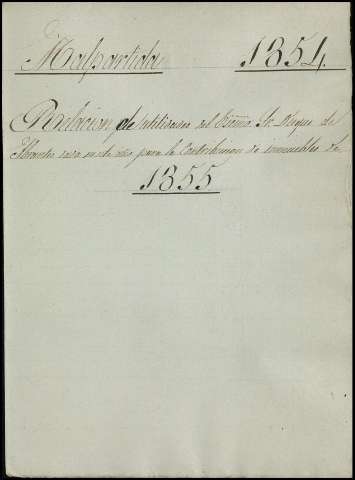 Malpartida 1854.
Relacion de utilidades del Exmo. Sr. Duque de
Abrantes para la Contribucion de inmuebles de
1855